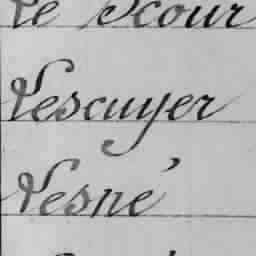 Le Scour
Lescuyer
Lesné